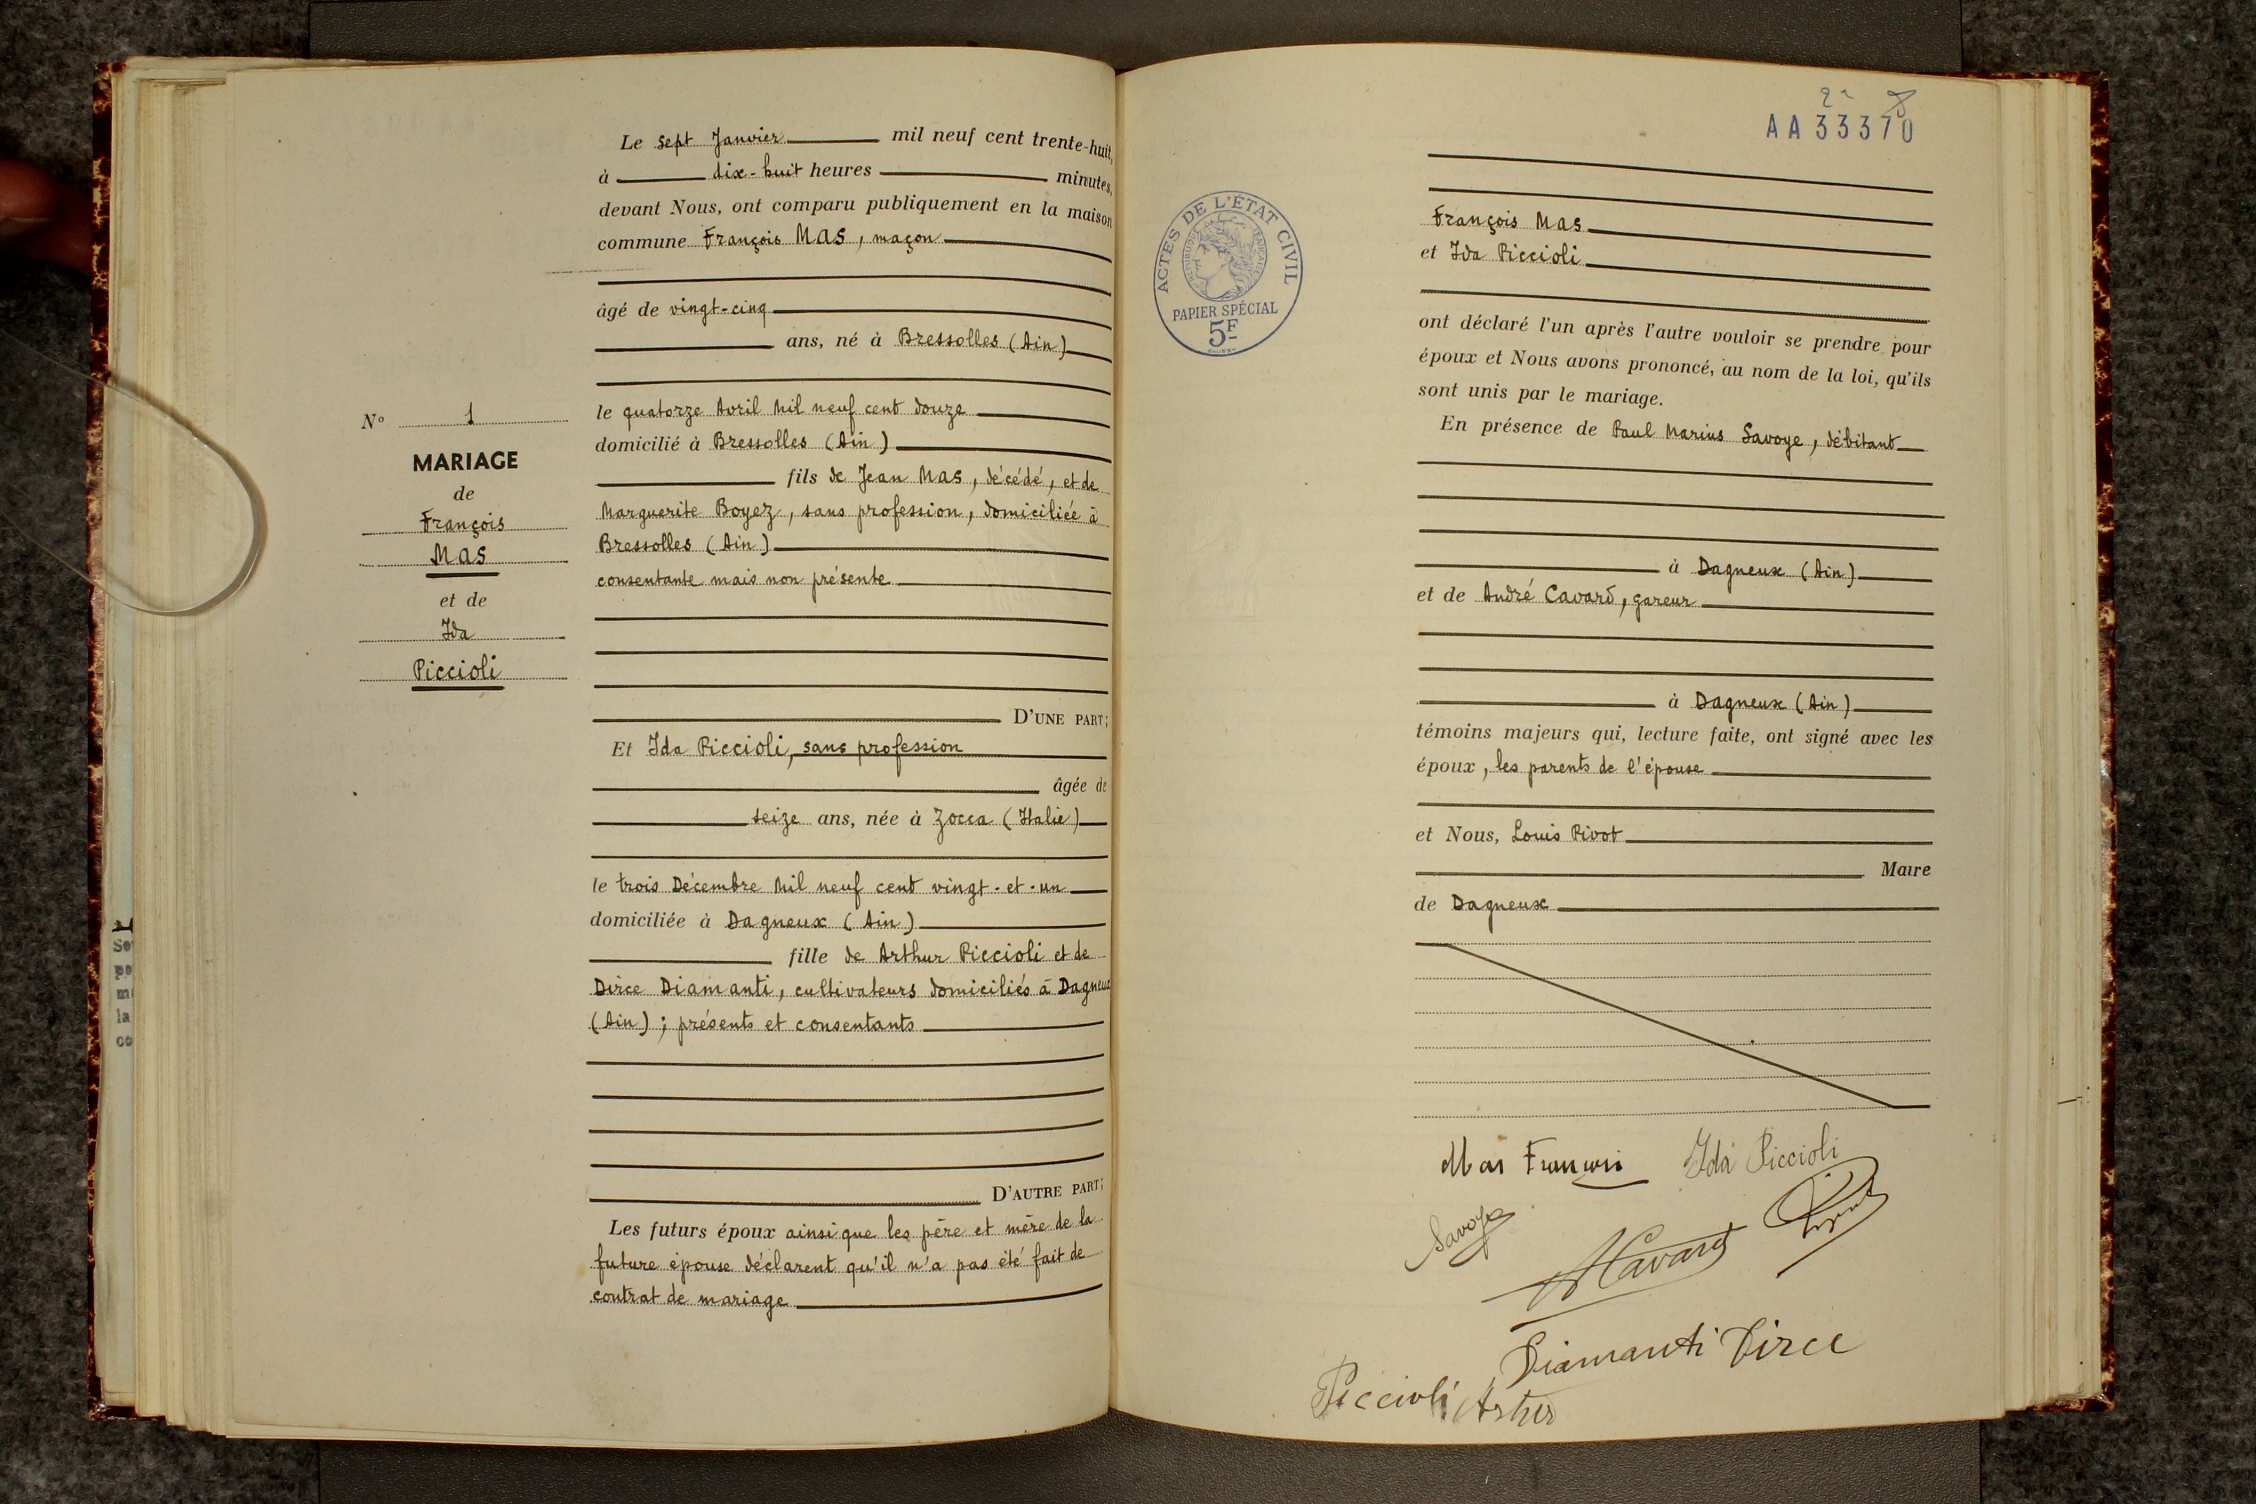 N° 1
MARIAGE
de
François
MAS
et de
Ida
Piccioli
Le sept Janvier mil neuf cent trente-huit,
à dix-huit heures minutes,
devant Nous, ont comparu publiquement en la maison
commune François MAS, maçon
âgé de vingt-cinq
ans, né à Bressolles (Ain)
le quatorze Avril Mil neuf cent douze
domicilié à Bressolles (Ain)
fils de Jean MAS, décédé, et de
Marguerite Boyez, sans profession, domiciliée à
Bressolles (Ain)
consentante mais non présente
D'UNE PART;
Et Ida Piccioli, sans profession
âgée de
seize ans, née à Zocca (Italie)
le trois Décembre Mil neuf cent vingt-et-un
domiciliée à Dagneux (Ain)
fille de Arthur Piccioli et de
Dirce Diamanti, cultivateurs domiciliés à Dagneux
(Ain); présents et consentants
D'AUTRE PART;
Les futurs époux ainsi que les père et mère de la
future épouse déclarent qu'il n'a pas été fait de
contrat de mariage
AA 33370
ACTES DE L'ÉTAT CIVIL
RÉPUBLIQUE FRANÇAISE
PAPIER SPÉCIAL
5F
François Mas
et Ida Piccioli
ont déclaré l'un après l'autre vouloir se prendre pour
époux et Nous avons prononcé, au nom de la loi, qu'ils
sont unis par le mariage.
En présence de Paul Marius Savoye, débitant
à Dagneux (Ain)
et de André Cavard, gareur
à Dagneux (Ain)
témoins majeurs qui, lecture faite, ont signé avec les
époux, les parents de l'épouse
et Nous, Louis Pivot
Maire
de Dagneux
Mas François Ida Piccioli
Savoye
ACavard Pivot
Diamanti Dirce
Piccioli